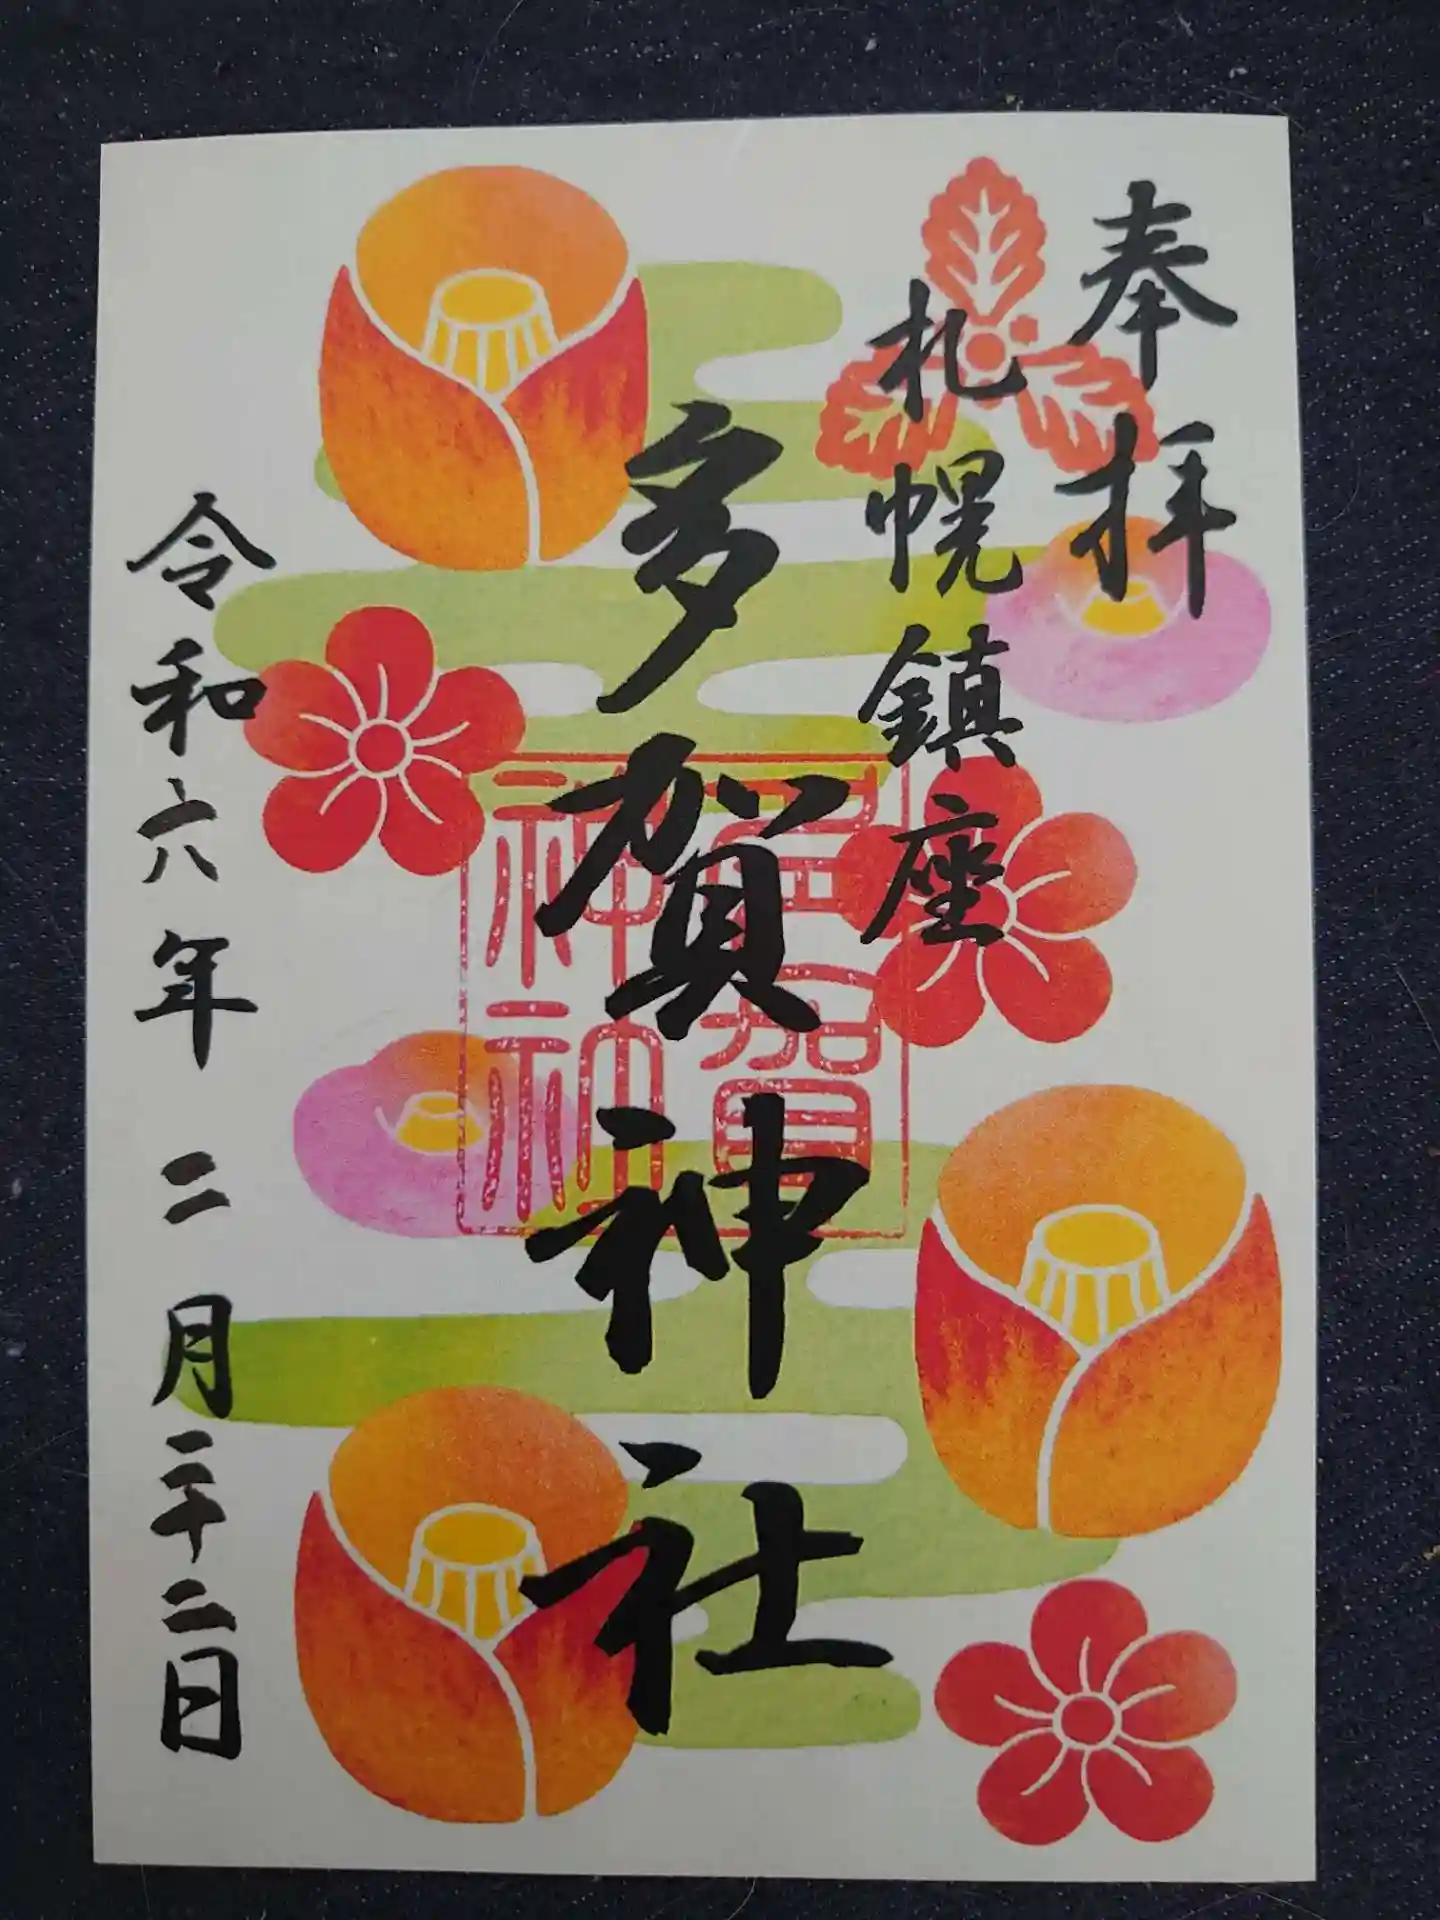 奉拝
札幌鎮座
多賀神社
多賀神社
令和六年二月二十二日